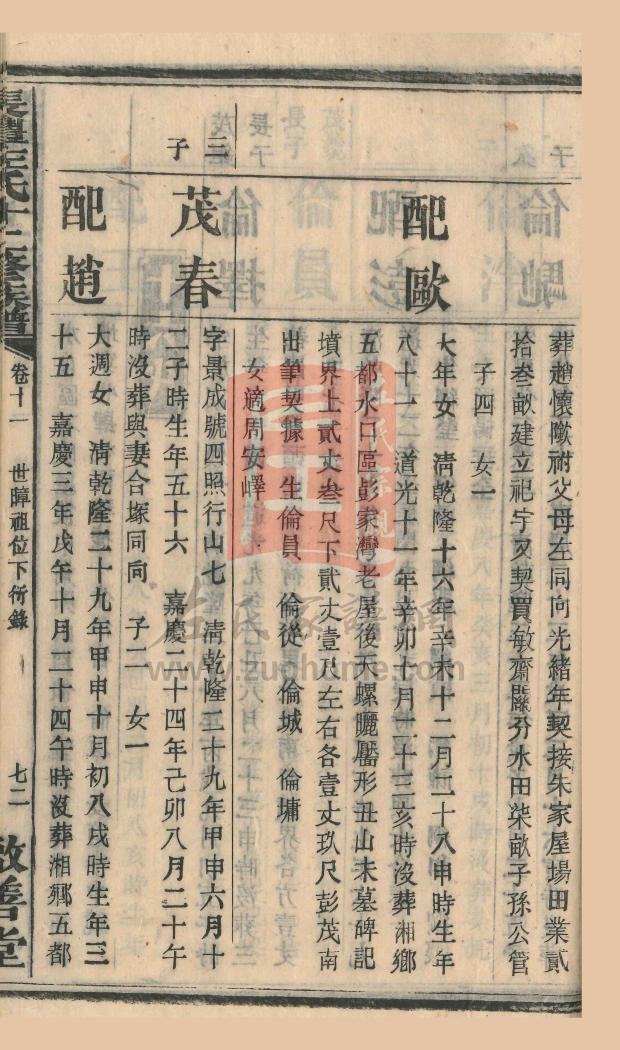 葬趙懷歟祔父母左同向光緒年契接朱家屋場田業貳
拾叁畝建立祀宇又契買敏齋鬮分水田柒畝子孫公管
子四　女一
配歐
大年女　清乾隆十六年辛未十二月二十八申時生年
八十一　道光十一年辛卯十月二十三亥時沒葬湘鄉
五都水口區彭家灣老屋後天螺曬靨形丑山未墓碑記
墳界上貳丈叁尺下貳丈壹尺左右各壹丈玖尺彭茂南
出筆契據　生倫員　倫從　倫城　倫墉
女適周安嶧
三子
茂春
字景成號四照行山七　清乾隆二十九年甲申六月十
二子時生年五十六　嘉慶二十四年己卯八月二十午
時沒葬與妻合塚同向　子二　女一
配趙
大週女　清乾隆二十九年甲申十月初八戌時生年三
十五　嘉慶三年戊午十月二十四午時沒葬湘鄉五都
左氏十二修族譜
卷十一　世暲祖位下衍錄
七二
敬善堂
左氏宗親
左氏家譜網
www.zuohome.com